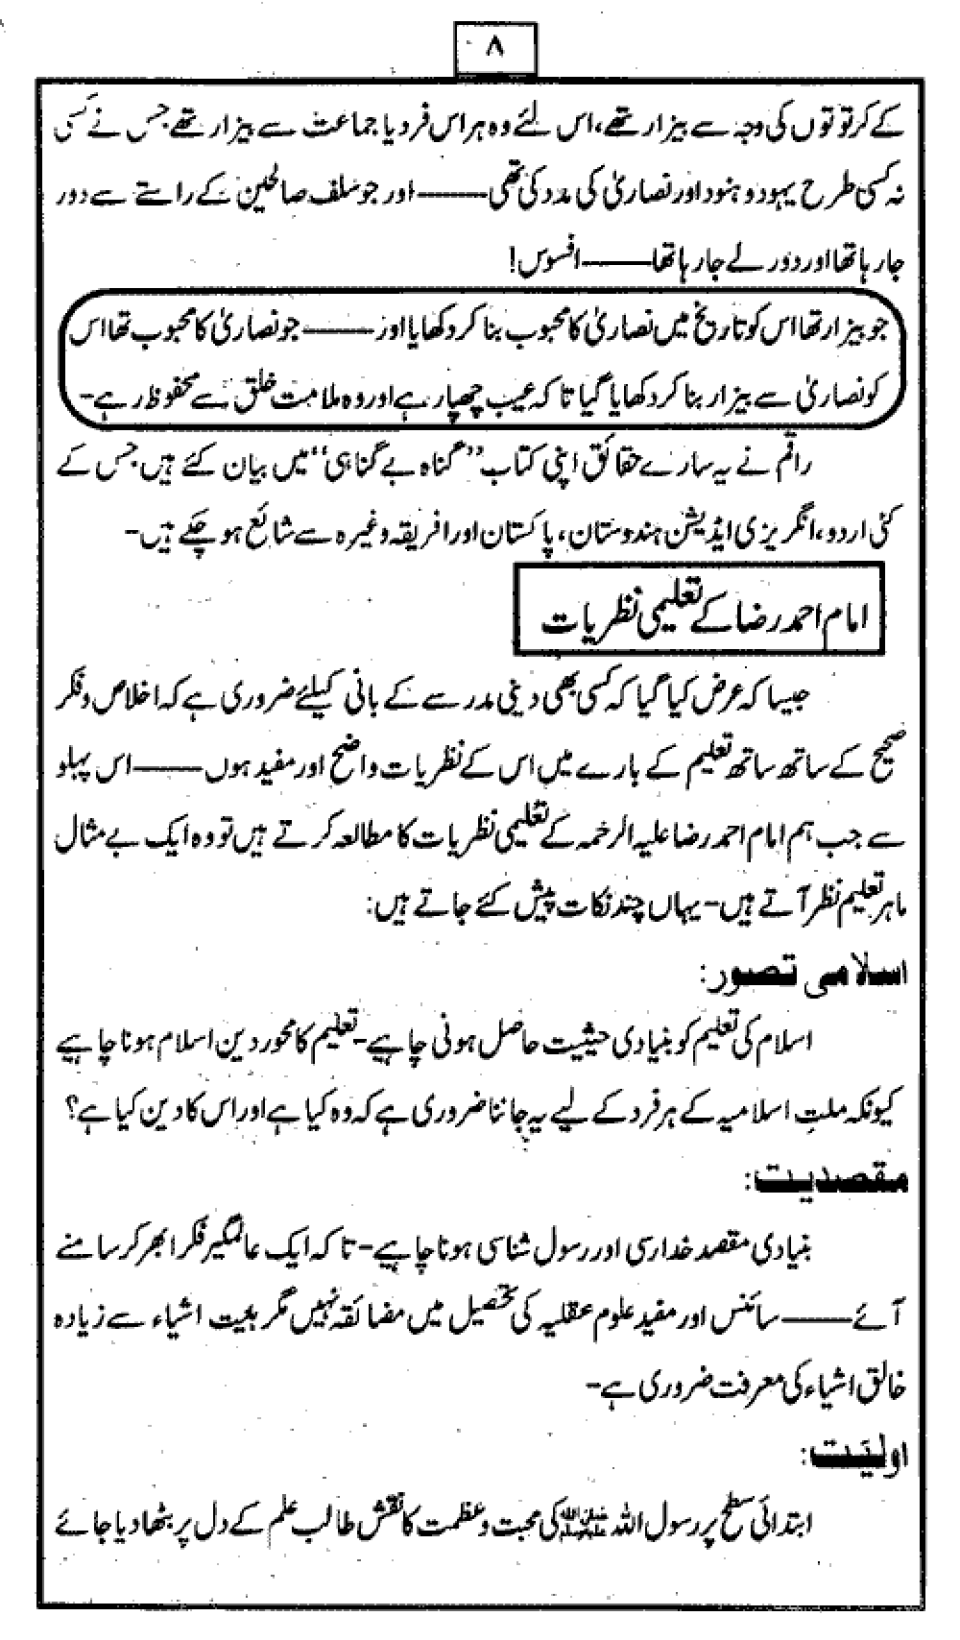 ۸
کے کرتوتوں کی وجہ سے بیزار تھے، اس لئے وہ ہر اس فرد یا جماعت سے بیزار تھے جس نے کسی
نہ کسی طرح یہود و ہنود اور نصاریٰ کی مدد کی تھی——— اور جو سلف صالحین کے راستے سے دور
جا رہا تھا اور دور لے جا رہا تھا——— افسوس!
جو بیزار تھا اس کو تاریخ میں نصاریٰ کا محبوب بنا کر دکھایا اور——— جو نصاریٰ کا محبوب تھا اس
کو نصاریٰ سے بیزار بنا کر دکھایا گیا تا کہ عیب چھپا رہے اور وہ ملامت خلق سے محفوظ رہے-
راقم نے یہ سارے حقائق اپنی کتاب ”گناہ بے گناہی“ میں بیان کئے ہیں جس کے
کئی اردو، انگریزی ایڈیشن ہندوستان، پاکستان اور افریقہ وغیرہ سے شائع ہو چکے ہیں-
امام احمد رضا کے تعلیمی نظریات
جیسا کہ عرض کیا گیا کہ کسی بھی دینی مدرسے کے بانی کیلئے ضروری ہے کہ اخلاص و فکر
صحیح کے ساتھ ساتھ تعلیم کے بارے میں اس کے نظریات واضح اور مفید ہوں——— اس پہلو
سے جب ہم امام احمد رضا علیہ الرحمہ کے تعلیمی نظریات کا مطالعہ کرتے ہیں تو وہ ایک بے مثال
ماہر تعلیم نظر آتے ہیں- یہاں چند نکات پیش کئے جاتے ہیں:
اسلامی تصور:
اسلام کی تعلیم کو بنیادی حیثیت حاصل ہونی چاہیے- تعلیم کا محور دین اسلام ہونا چاہیے
کیونکہ ملتِ اسلامیہ کے ہر فرد کے لیے یہ جاننا ضروری ہے کہ وہ کیا ہے اور اس کا دین کیا ہے؟
مقصدیت:
بنیادی مقصد خدارسی اور رسول شناسی ہونا چاہیے- تا کہ ایک عالمگیر فکر ابھر کر سامنے
آئے——— سائنس اور مفید علوم عقلیہ کی تحصیل میں مضائقہ نہیں مگر ہیئت اشیاء سے زیادہ
خالق اشیاء کی معرفت ضروری ہے-
اولیّت:
ابتدائی سطح پر رسول اللہ ﷺ کی محبت و عظمت کا نقش طالب علم کے دل پر بٹھا دیا جائے